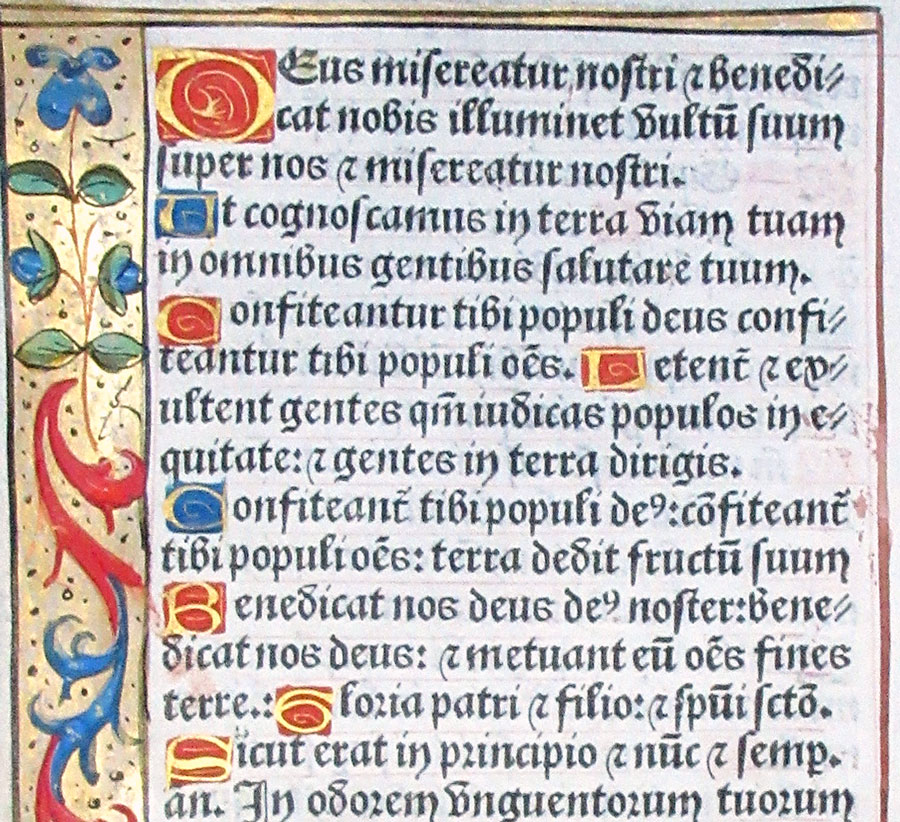 DEus misereatur nostri ⁊ benedi⸗
cat nobis illuminet vultū suum
super nos ⁊ misereatur nostri.
Ut cognoscamus in terra viam tuam
in omnibus gentibus salutare tuum.
Confiteantur tibi populi deus confi⸗
teantur tibi populi oēs. Letent̄ ⁊ ex⸗
ultent gentes qm̄ iudicas populos in e⸗
quitate: ⁊ gentes in terra dirigis.
Confiteant̄ tibi populi deꝰ: cōfiteant̄
tibi populi oēs: terra dedit fructū suum
Benedicat nos deus deꝰ noster: bene⸗
dicat nos deus: ⁊ metuant eū oēs fines
terre.: Gloria patri ⁊ filio: ⁊ spūi sctō.
Sicut erat in principio ⁊ nūc ⁊ semꝑ.
an. In odorem vnguentorum tuorum